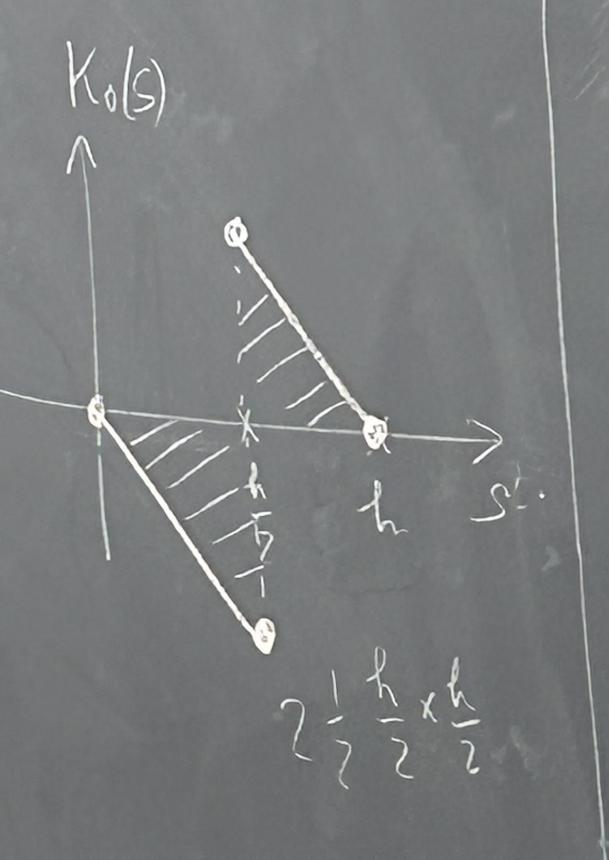 K₀(s)
h/2
h
s
2 1/2 h/2 × h/2